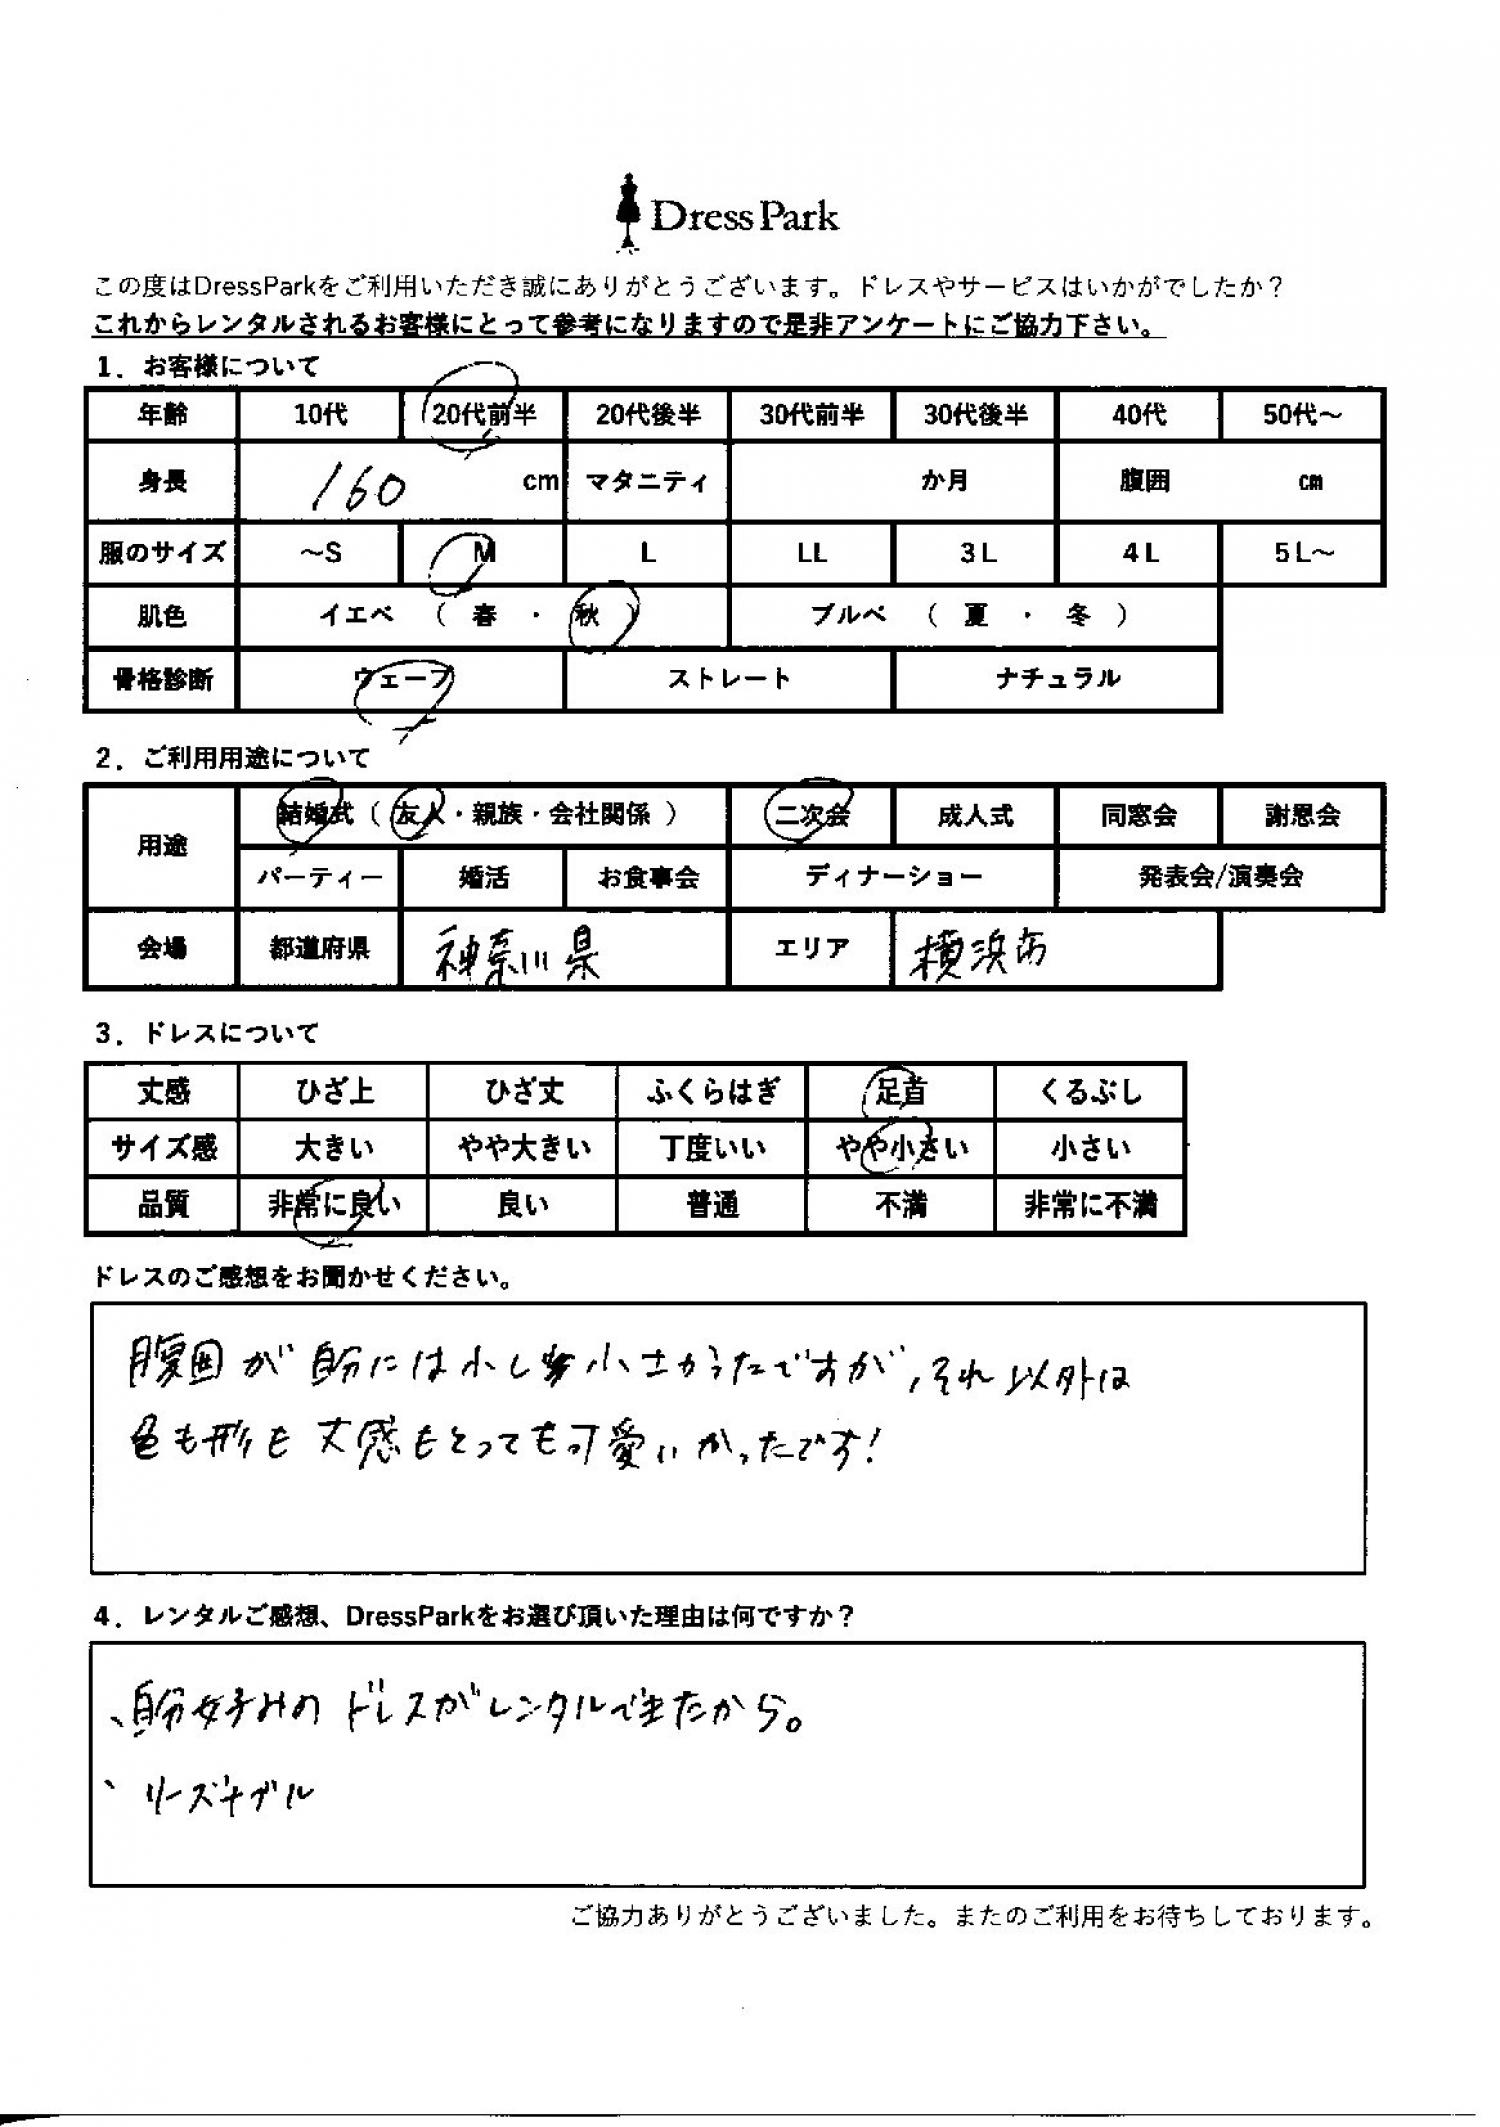 DressPark
この度はDressParkをご利用いただき誠にありがとうございます。ドレスやサービスはいかがでしたか？
これからレンタルされるお客様にとって参考になりますので是非アンケートにご協力下さい。
1．お客様について
年齢 10代 20代前半 20代後半 30代前半 30代後半 40代 50代～
身長 160 cm マタニティ か月 腹囲 cm
服のサイズ ～S M L LL 3L 4L 5L～
肌色 イエベ （ 春 ・ 秋 ） ブルベ （ 夏 ・ 冬 ）
骨格診断 ウェーブ ストレート ナチュラル
2．ご利用用途について
用途 結婚式（ 友人・親族・会社関係 ） 二次会 成人式 同窓会 謝恩会
パーティー 婚活 お食事会 ディナーショー 発表会/演奏会
会場 都道府県 神奈川県 エリア 横浜市
3．ドレスについて
丈感 ひざ上 ひざ丈 ふくらはぎ 足首 くるぶし
サイズ感 大きい やや大きい 丁度いい やや小さい 小さい
品質 非常に良い 良い 普通 不満 非常に不満
ドレスのご感想をお聞かせください。
腹囲が自分には少し小さかったですが、それ以外は
色も形も丈感もとっても可愛いかったです!
4．レンタルご感想、DressParkをお選び頂いた理由は何ですか？
、自分好みのドレスがレンタルできたから。
、リーズナブル
ご協力ありがとうございました。またのご利用をお待ちしております。